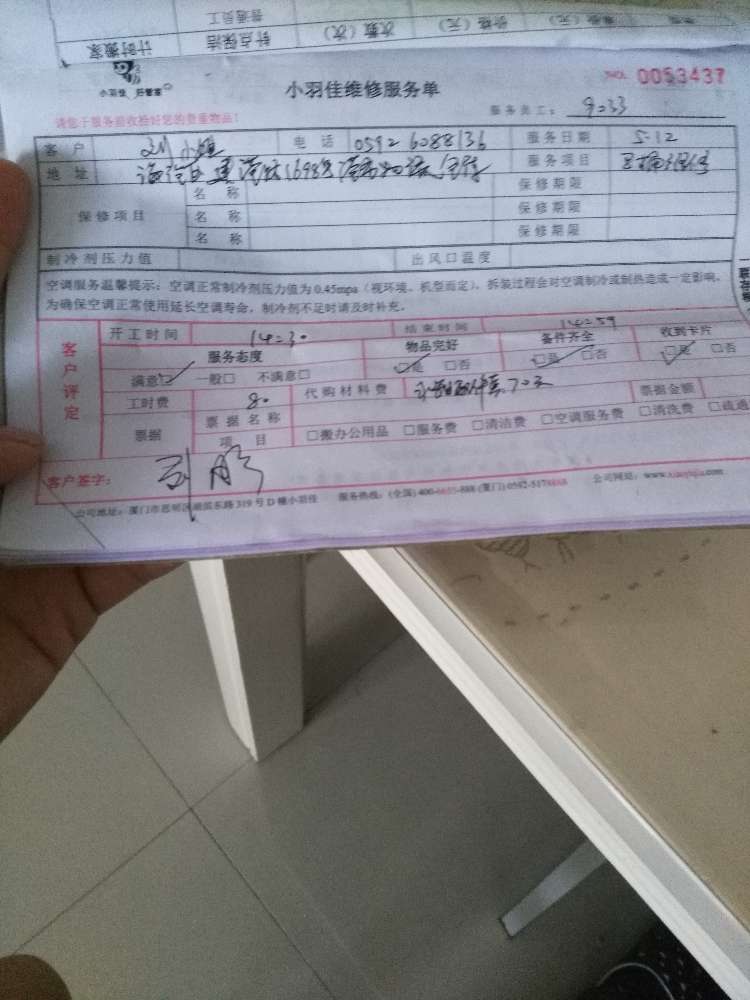 计时搬家 针点保洁 次数（次） 价格（元）
普通员工
小羽佳 好管家
小羽佳维修服务单
0053437
请您于服务前收捡好您的贵重物品！
服务员工： 9033
客户 刘小姐 电话 0592 6088136 服务日期 5.12
地址 服务项目
保修项目 名称 保修期限
名称 保修期限
名称 保修期限
制冷剂压力值 出风口温度
空调服务温馨提示：空调正常制冷剂压力值为0.45mpa（视环境、机型而定），拆装过程会对空调制冷或制热造成一定影响，
为确保空调正常使用延长空调寿命，制冷剂不足时请及时补充。
客户评定
开工时间 14:30 结束时间 14:59
服务态度 物品完好 备件齐全 收到卡片
满意☑ 一般□ 不满意□ ☑是 □否 ☑是 □否 ☑是 □否
工时费 80 代购材料费 70元 票据金额
票据 票据名称
项目 □搬办公用品 □服务费 □清洁费 □空调服务费 □清洗费 □疏通
客户签字：
公司地址：厦门市思明区湖滨东路319号D幢小羽佳 服务热线：(全国) 400-6655-888 (厦门) 0592-5178888 公司网站：www.xiaoyujia.com